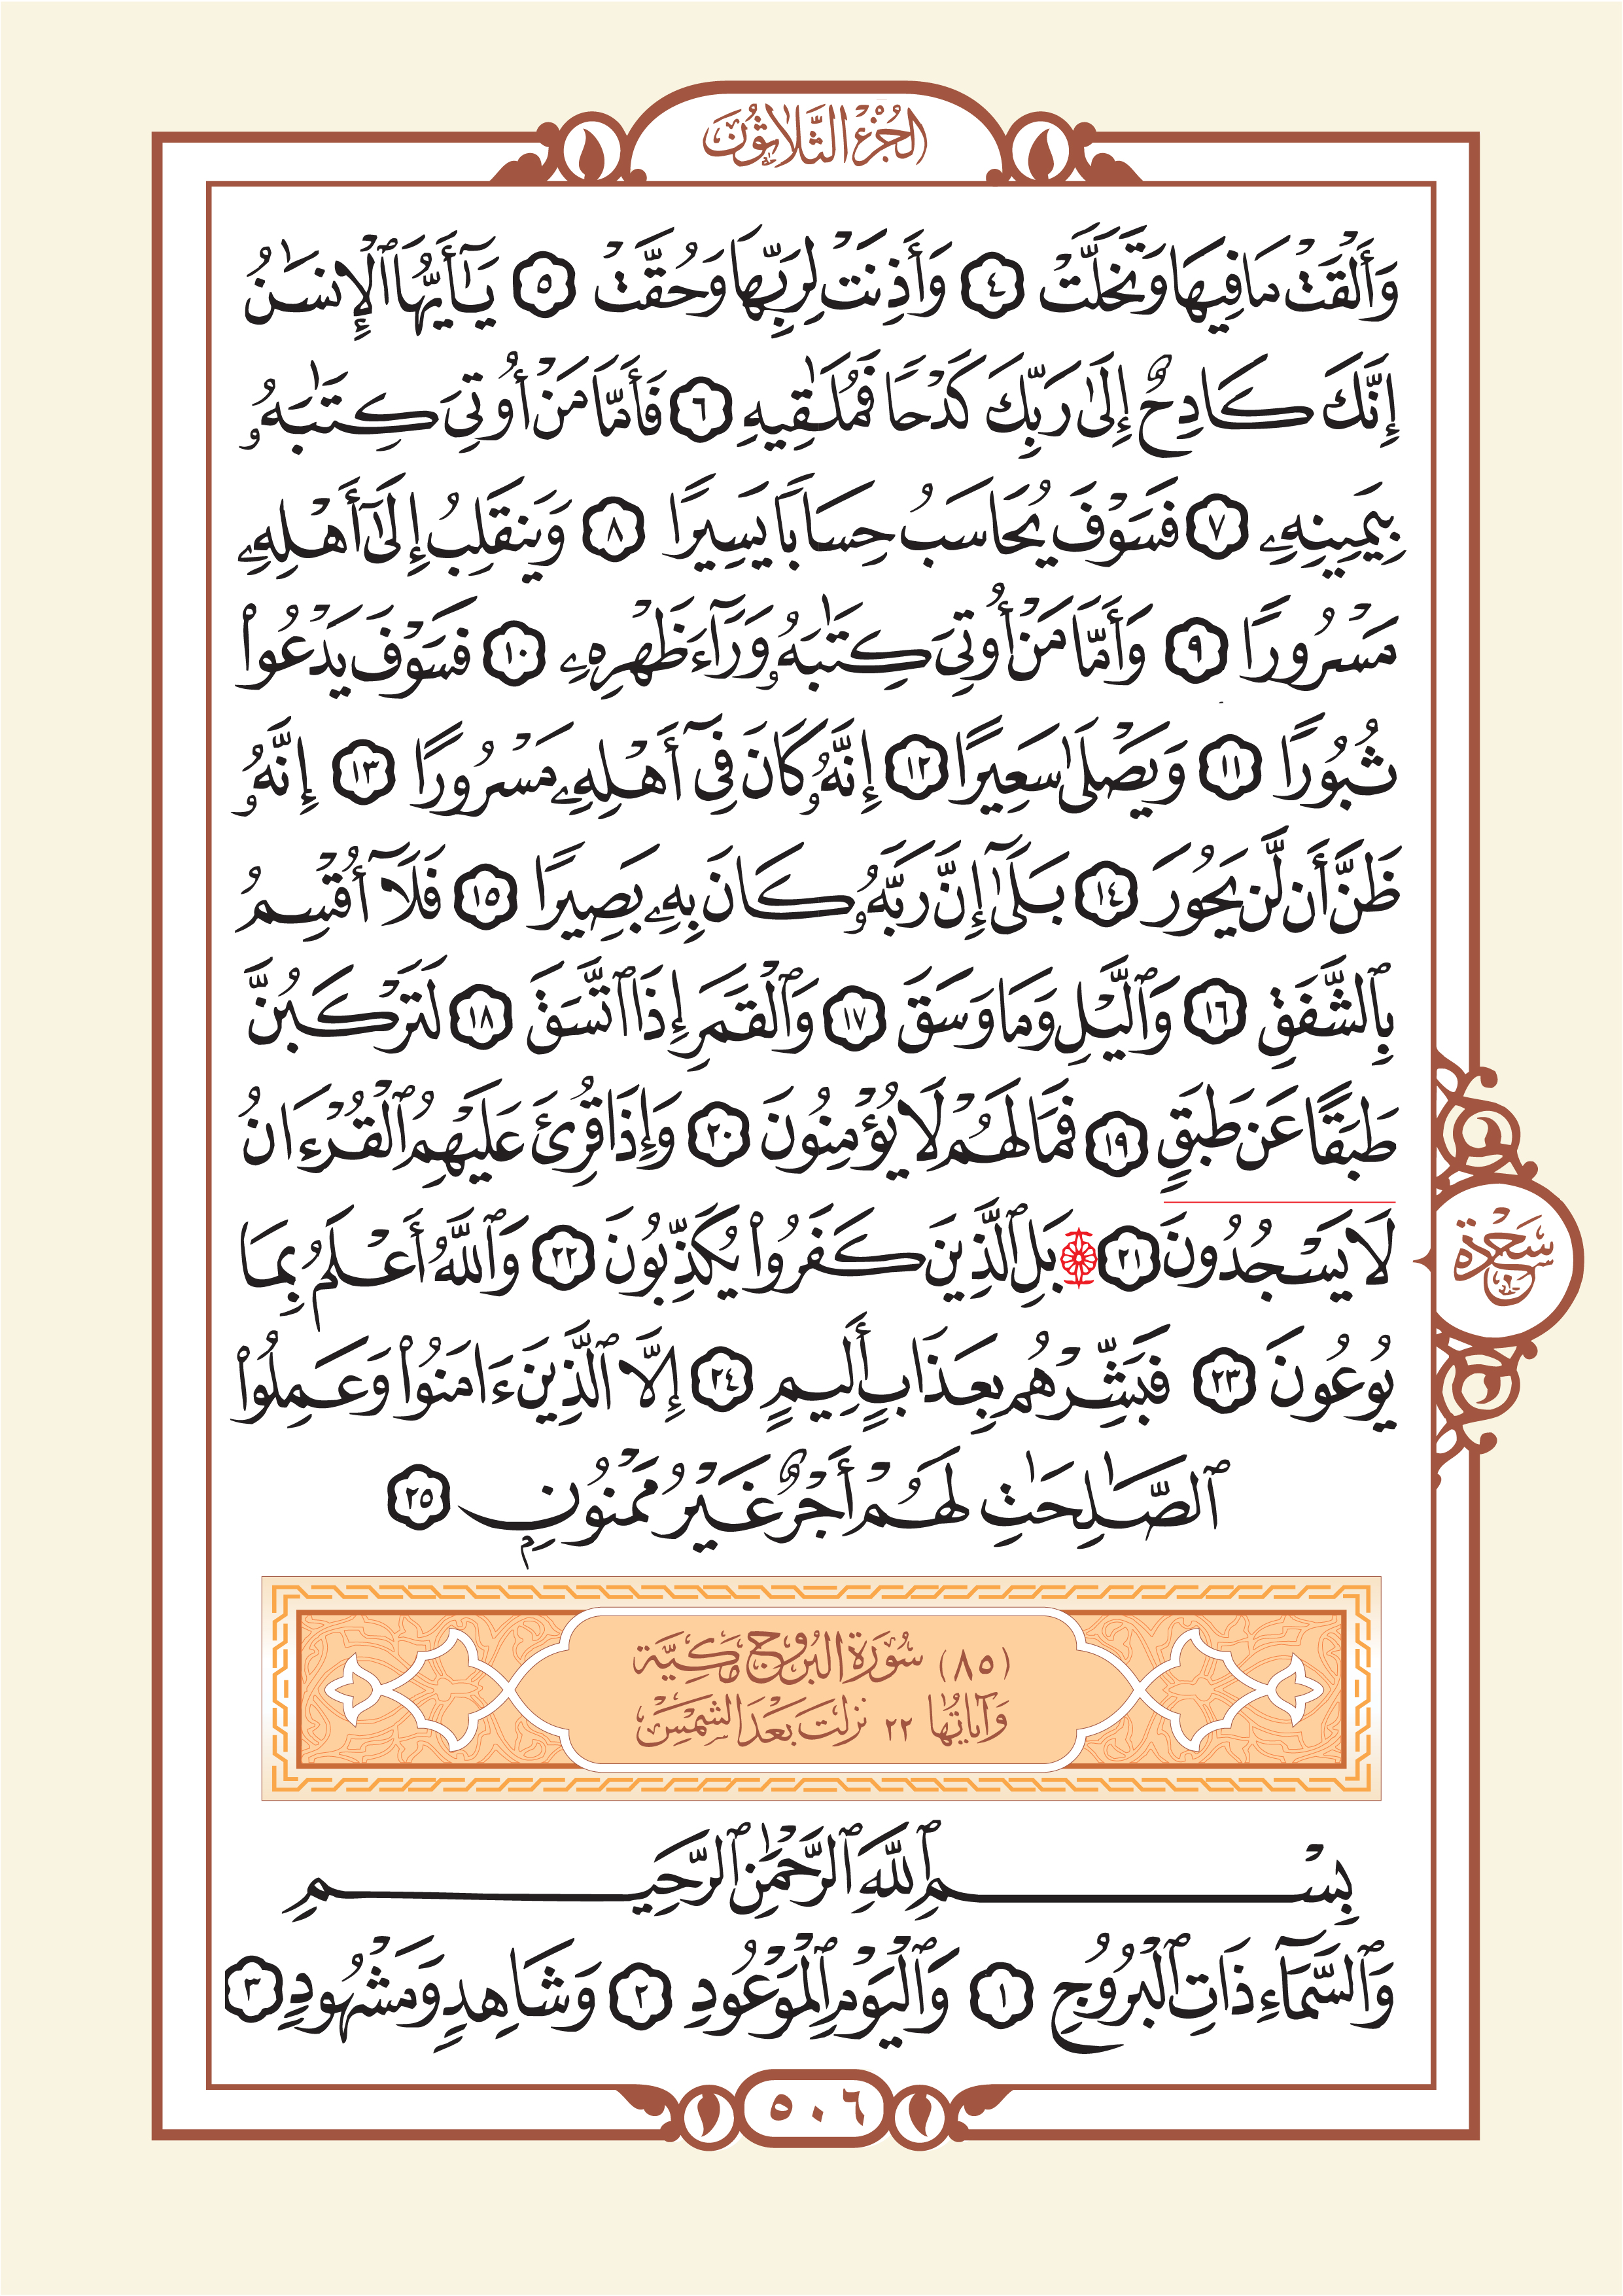 الجُزْءُ الثَّلَاثُونَ
وَأَلْقَتْ مَا فِيهَا وَتَخَلَّتْ ٤ وَأَذِنَتْ لِرَبِّهَا وَحُقَّتْ ٥ يَـٰٓأَيُّهَا ٱلْإِنسَـٰنُ
إِنَّكَ كَادِحٌ إِلَىٰ رَبِّكَ كَدْحًا فَمُلَـٰقِيهِ ٦ فَأَمَّا مَنْ أُوتِىَ كِتَـٰبَهُۥ
بِيَمِينِهِۦ ٧ فَسَوْفَ يُحَاسَبُ حِسَابًا يَسِيرًا ٨ وَيَنقَلِبُ إِلَىٰٓ أَهْلِهِۦ
مَسْرُورًا ٩ وَأَمَّا مَنْ أُوتِىَ كِتَـٰبَهُۥ وَرَآءَ ظَهْرِهِۦ ١٠ فَسَوْفَ يَدْعُوا۟
ثُبُورًا ١١ وَيَصْلَىٰ سَعِيرًا ١٢ إِنَّهُۥ كَانَ فِىٓ أَهْلِهِۦ مَسْرُورًا ١٣ إِنَّهُۥ
ظَنَّ أَن لَّن يَحُورَ ١٤ بَلَىٰٓ إِنَّ رَبَّهُۥ كَانَ بِهِۦ بَصِيرًا ١٥ فَلَآ أُقْسِمُ
بِٱلشَّفَقِ ١٦ وَٱلَّيْلِ وَمَا وَسَقَ ١٧ وَٱلْقَمَرِ إِذَا ٱتَّسَقَ ١٨ لَتَرْكَبُنَّ
طَبَقًا عَن طَبَقٍ ١٩ فَمَا لَهُمْ لَا يُؤْمِنُونَ ٢٠ وَإِذَا قُرِئَ عَلَيْهِمُ ٱلْقُرْءَانُ
لَا يَسْجُدُونَ ٢١ بَلِ ٱلَّذِينَ كَفَرُوا۟ يُكَذِّبُونَ ٢٢ وَٱللَّهُ أَعْلَمُ بِمَا
سَجْدَة
يُوعُونَ ٢٣ فَبَشِّرْهُم بِعَذَابٍ أَلِيمٍ ٢٤ إِلَّا ٱلَّذِينَ ءَامَنُوا۟ وَعَمِلُوا۟
ٱلصَّـٰلِحَـٰتِ لَهُمْ أَجْرٌ غَيْرُ مَمْنُونٍۭ ٢٥
(٨٥) سُورَة البُرُوج مَكيَّة
وَآيَاتُهَا ٢٢ نزلت بَعْدَ الشَّمْسِ
بِسْمِ ٱللَّهِ ٱلرَّحْمَـٰنِ ٱلرَّحِيمِ
وَٱلسَّمَآءِ ذَاتِ ٱلْبُرُوجِ ١ وَٱلْيَوْمِ ٱلْمَوْعُودِ ٢ وَشَاهِدٍ وَمَشْهُودٍ ٣
٥٠٦